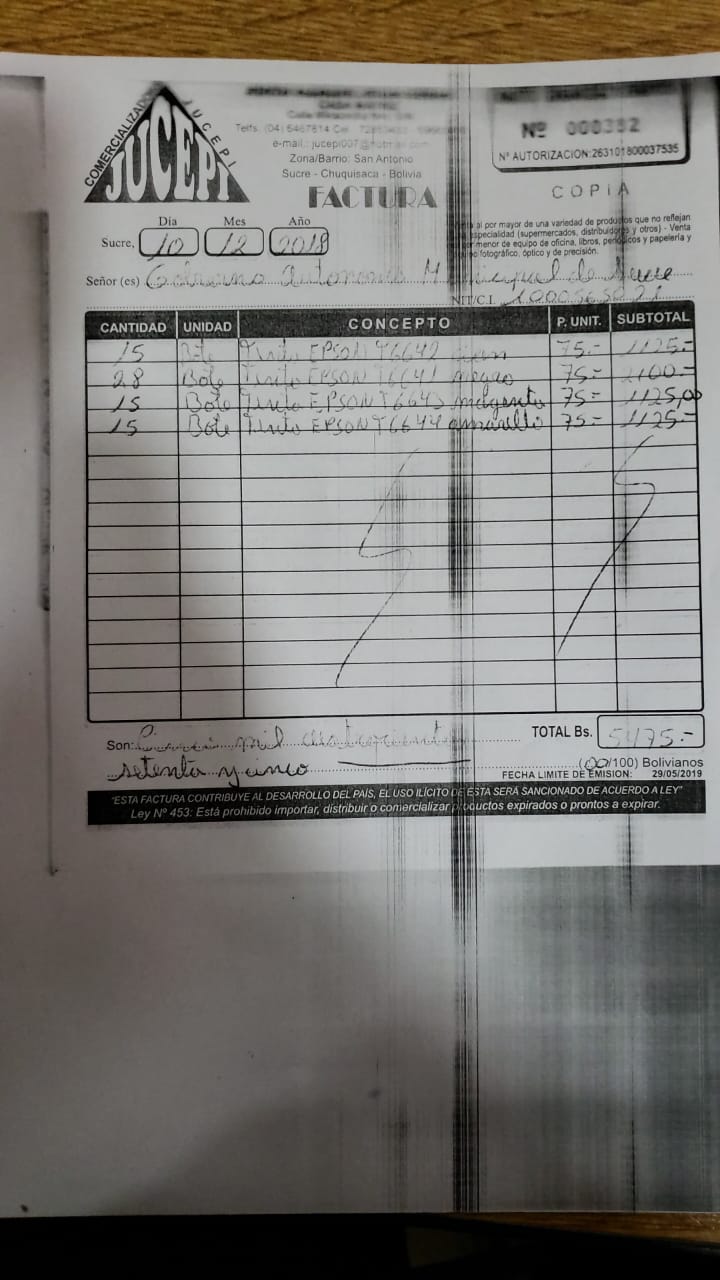 COMERCIALIZADORA JUCEPI
JUCEPI
Telfs. (04) 6467814
e-mail.: jucepi007@hotmail.com
Zona/Barrio: San Antonio
Sucre - Chuquisaca - Bolivia
FACTURA
Nº 000382
Nº AUTORIZACION:263101800037535
COPIA
al por mayor de una variedad de productos que no reflejan
especialidad (supermercados, distribuidores y otros) - Venta
menor de equipo de oficina, libros, periódicos y papelería y
fotográfico, óptico y de precisión.
Día Mes Año
Sucre, 10 12 2018
Señor (es) Gobierno Autonomo Municipal de Sucre
NIT/C.I.
CANTIDAD UNIDAD CONCEPTO P. UNIT. SUBTOTAL
15 Bote Tinta EPSON T6642 75.- 1125.-
28 Bote Tinta EPSON T6641 negro 75.- 2100.-
15 Bote Tinta EPSON T6643 magenta 75.- 1125,00
15 Bote Tinta EPSON T6644 amarillo 75.- 1125.-
TOTAL Bs. 5475.-
Son: Cinco mil cuatrocientos
setenta y cinco (00/100) Bolivianos
FECHA LIMITE DE EMISION: 29/05/2019
"ESTA FACTURA CONTRIBUYE AL DESARROLLO DEL PAÍS, EL USO ILÍCITO DE ESTA SERÁ SANCIONADO DE ACUERDO A LEY"
Ley Nº 453: Está prohibido importar, distribuir o comercializar productos expirados o prontos a expirar.